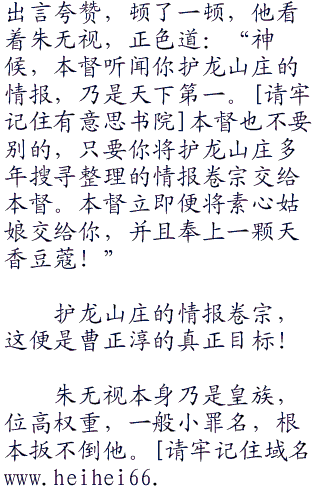 出言夸赞，顿了一顿，他看
着朱无视，正色道：“神
候，本督听闻你护龙山庄的
情报，乃是天下第一。[请牢
记住有意思书院]本督也不要
别的，只要你将护龙山庄多
年搜寻整理的情报卷宗交给
本督。本督立即便将素心姑
娘交给你，并且奉上一颗天
香豆蔻！”
护龙山庄的情报卷宗，
这便是曹正淳的真正目标！
朱无视本身乃是皇族，
位高权重，一般小罪名，根
本扳不倒他。[请牢记住域名
www.heihei66.